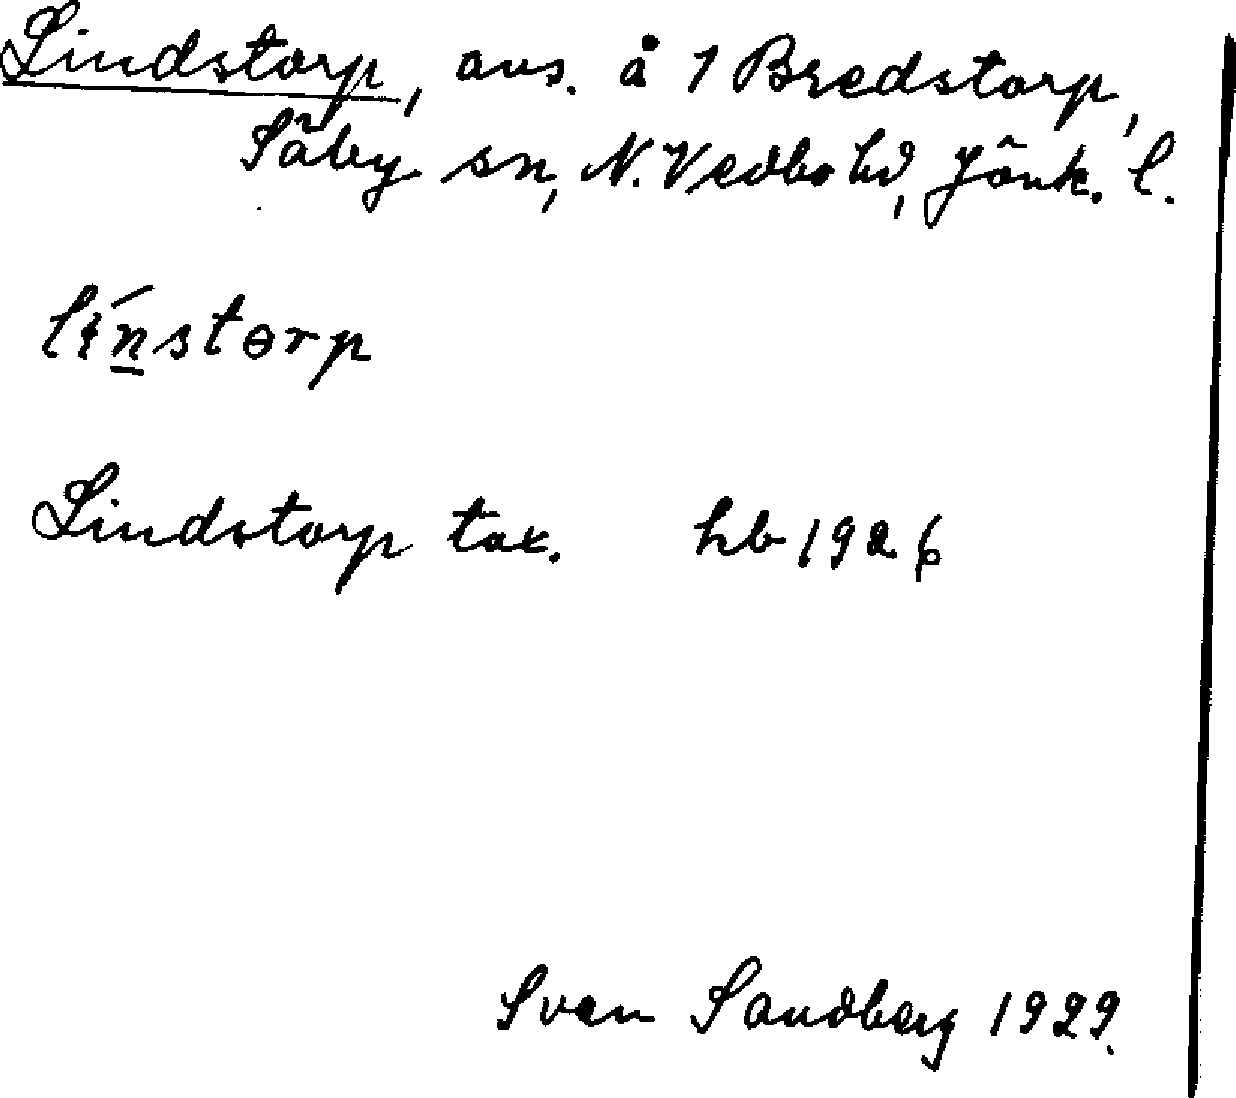 Lindstorp, avs. å 1 Bredstorp,
Säby sn, N. Vedbo hd, Jönk. l.
liństɵrp
Lindstorp tax. hb 1926
Sven Sandberg 1929.